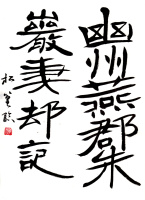 幽州燕郡朱
巖妻却記
松